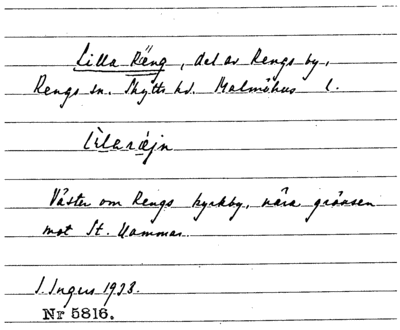 Lilla Räng, del av Rengs by,
Rengs sn. Skytts hd. Malmöhus l.
lìlaräjn
Väster om Rengs kyrkby, nära gränsen
mot St. Hammar.
I. Ingers 1933.
Nr 5816.